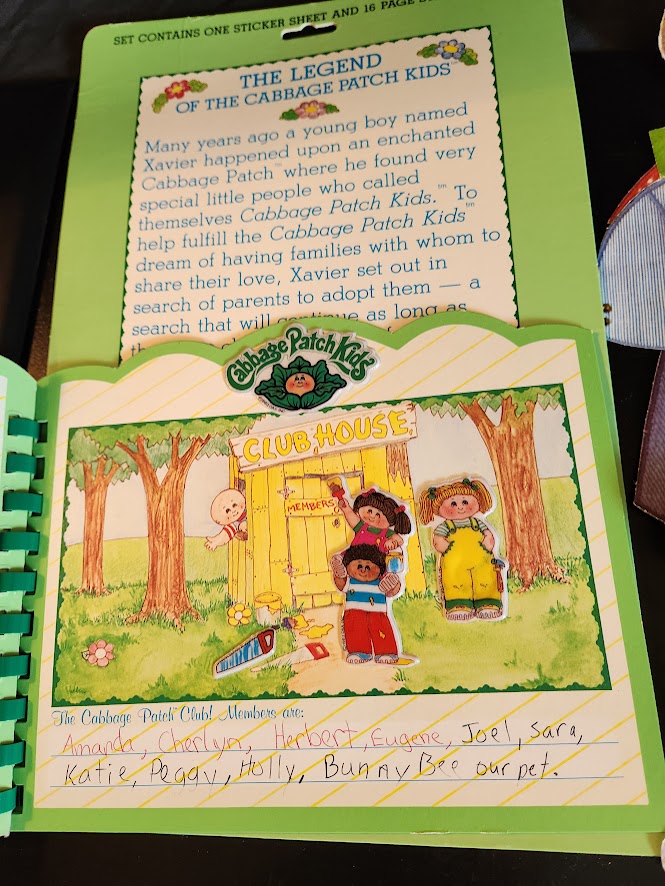 SET CONTAINS ONE STICKER SHEET AND 16 PAGE
THE LEGEND
OF THE CABBAGE PATCH KIDS
Many years ago a young boy named
Xavier happened upon an enchanted
Cabbage Patch™ where he found very
special little people who called
themselves Cabbage Patch Kids.™ To
help fulfill the Cabbage Patch Kids™
dream of having families with whom to
share their love, Xavier set out in
search of parents to adopt them — a
search that will continue as long as
Cabbage Patch Kids
CLUB HOUSE
MEMBERS
The Cabbage Patch™ Club! Members are:
Amanda, Cherlyn, Herbert, Eugene, Joel, Sara,
Katie, Peggy, Holly, Bunny Bee our pet.